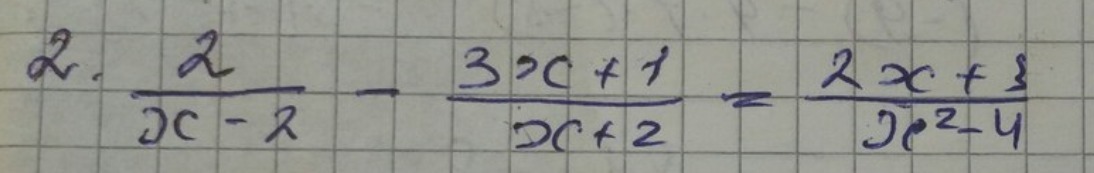 2. \frac{2}{x-2} - \frac{3x+1}{x+2} = \frac{2x+3}{x^2-4}